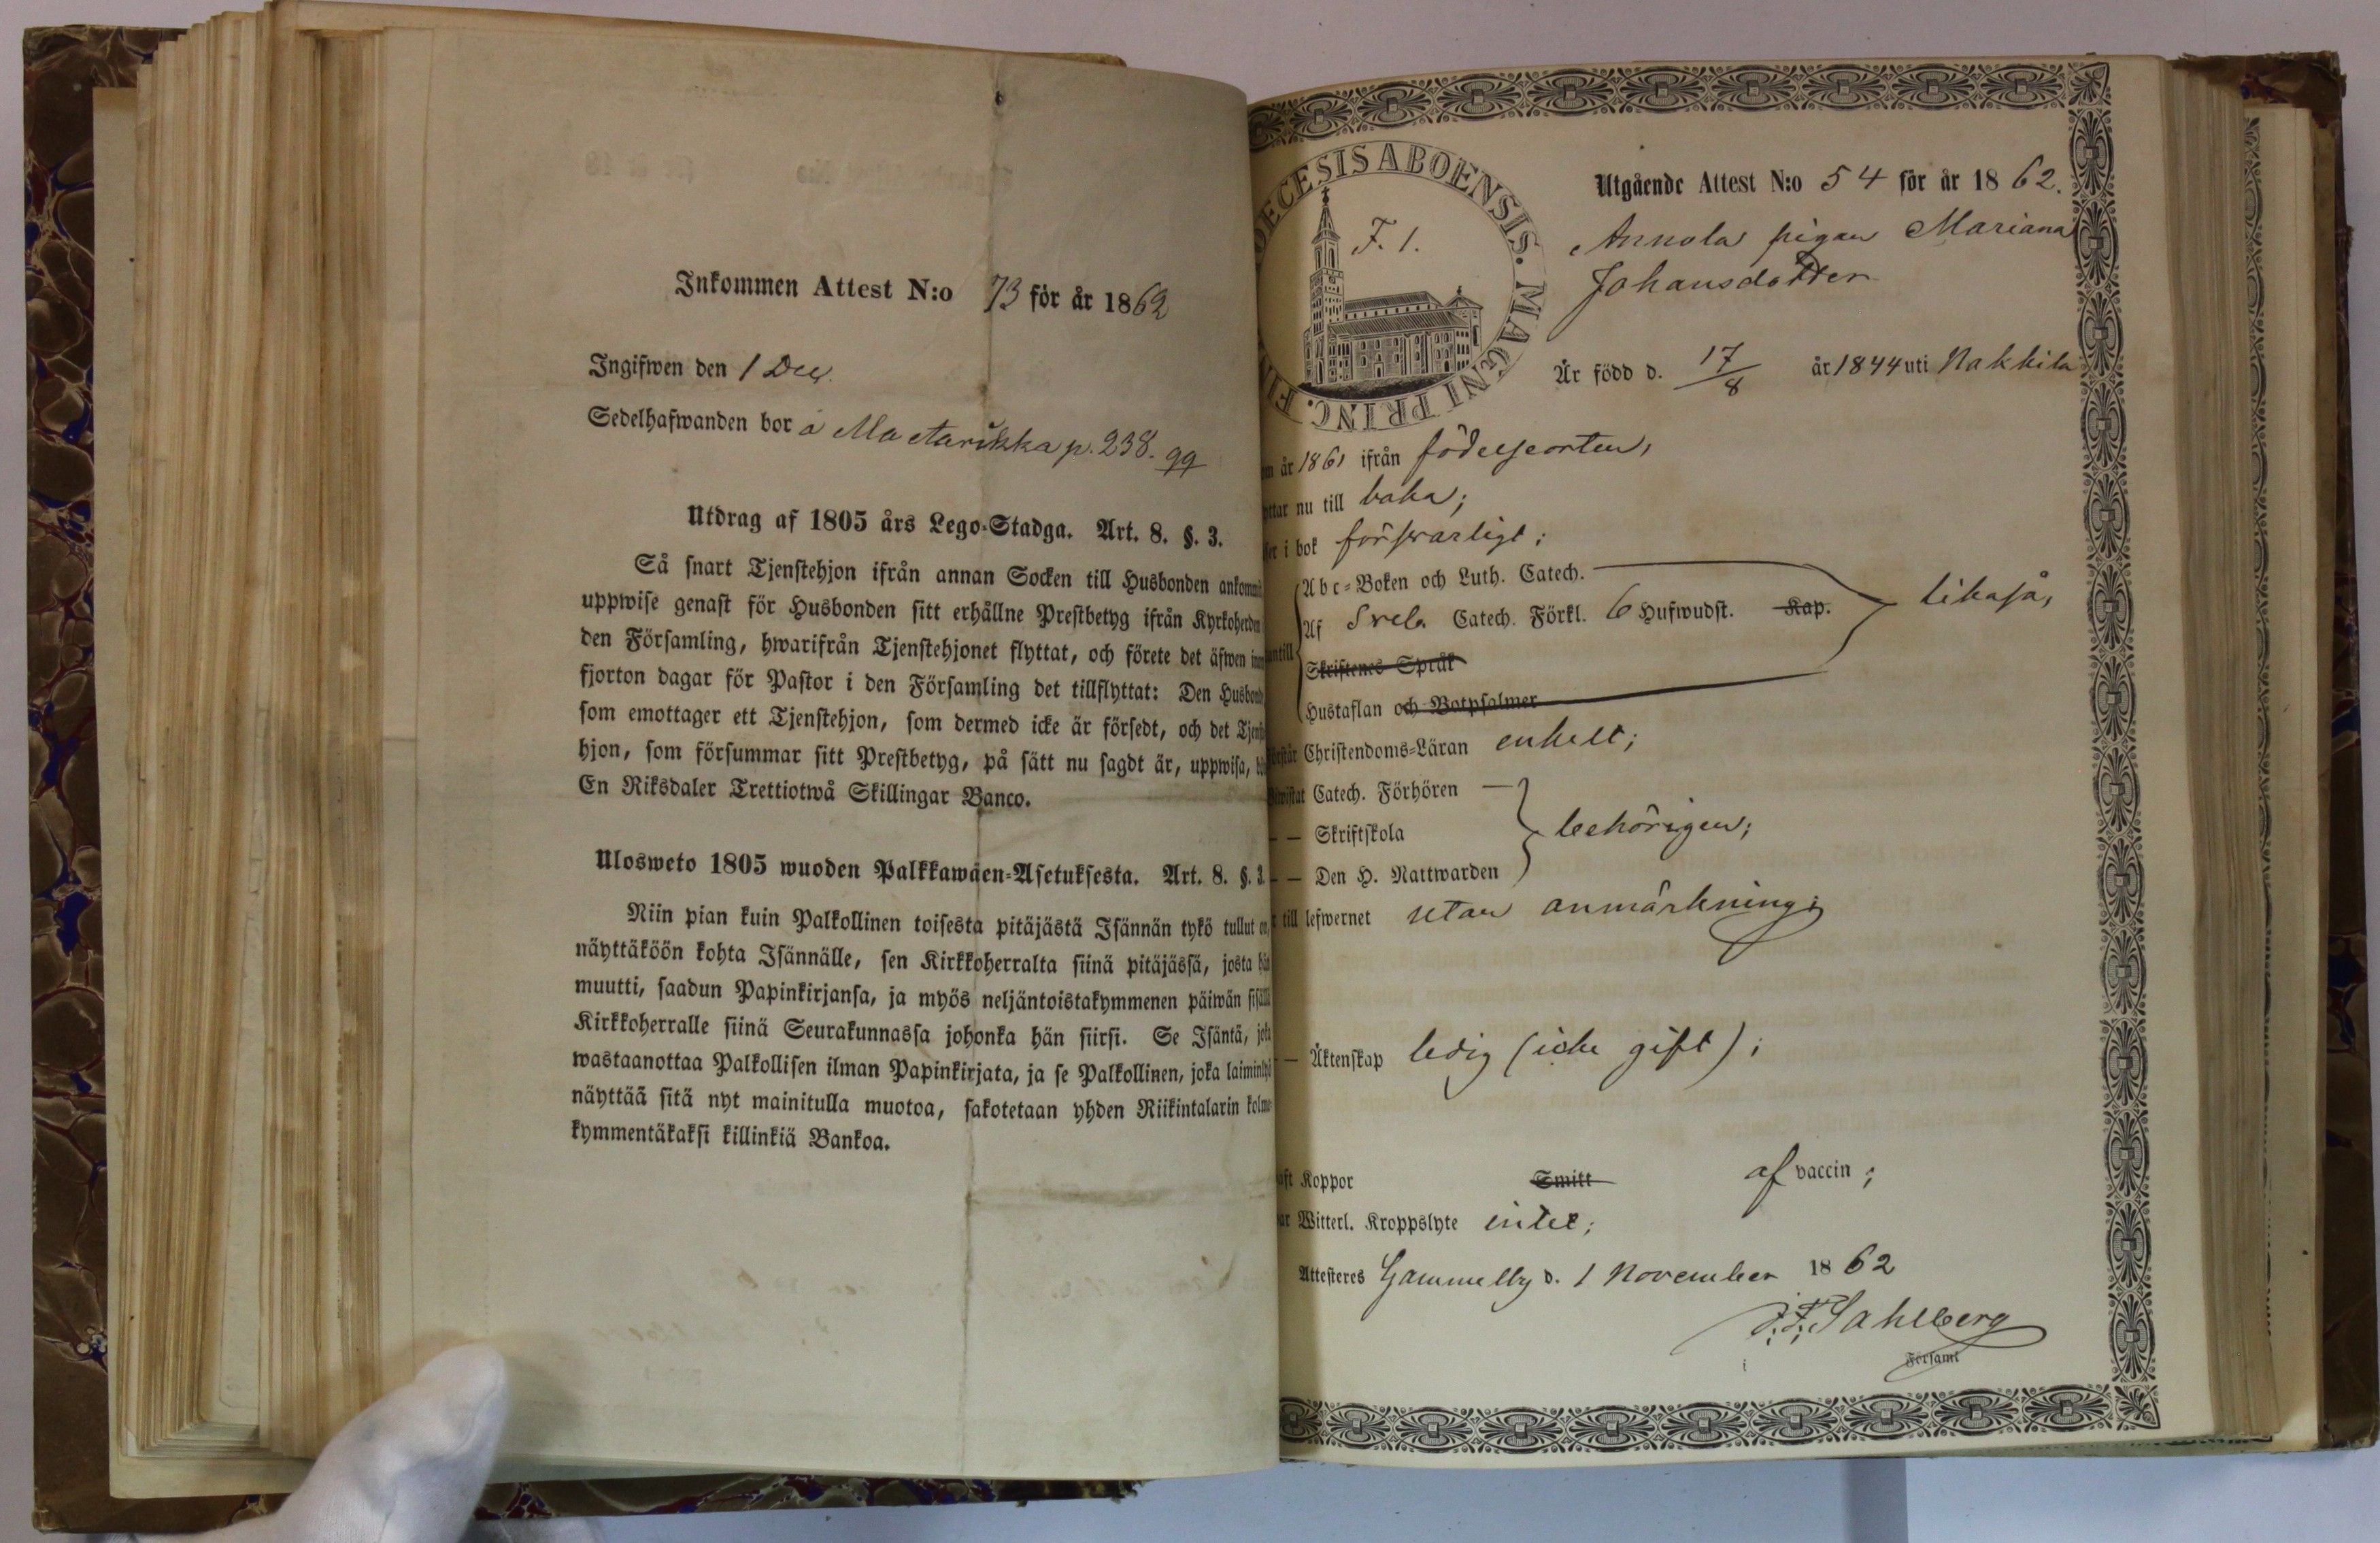 Inkommen Attest N:o 73 för år 1862
Ingifwen den 1 Dec.
Sedelhafwanden bor å Mactarikka p. 238. 99
Utdrag af 1805 års Lego-Stadga. Art. 8. §. 3.
Så snart Tjenstehjon ifrån annan Socken till Husbonden
uppwise genast för Husbonden sitt erhållne Prestbetyg ifrån
den Församling, hwarifrån Tjenstehjonet flyttat, och förete det äfwen
fjorton dagar för Pastor i den Församling det tillflyttat: Den
som emottager ett Tjenstehjon, som dermed icke är försedt, och det
hjon, som försummar sitt Prestbetyg, på sätt nu sagdt är, uppwisa,
En Riksdaler Trettiotwå Skillingar Banco.
Ulosweto 1805 wuoden Palkkawäen-Asetuksesta. Art. 8. §. 3.
Niin pian kuin Palkollinen toisesta pitäjästä Isännän tykö tullut on,
näyttäköön kohta Isännälle, sen Kirkkoherralta siinä pitäjässä, josta
muutti, saadun Papinkirjansa, ja myös neljäntoistakymmenen päiwän
Kirkkoherralle siinä Seurakunnassa johonka hän siirsi. Se Isäntä,
wastaanottaa Palkollisen ilman Papinkirjata, ja se Palkollinen, joka
näyttää sitä nyt mainitulla muotoa, sakotetaan yhden Riikintalarin kolme-
kymmentäkaksi killinkiä Bankoa.
DECESIS ABOENSIS. MAGNI PRINC.
F. 1.
Utgående Attest N:o 54 för år 1862.
Annola pigan Mariana
Johansdotter
Är född d. 17/8 år 1844 uti Nakkila
år 1861 ifrån födelseorten,
nu till baka;
i bok försvarligt;
Abc-Boken och Luth. Catech.
Af Sveb. Catech. Förkl. 6 Hufwudst. Kap. likaså,
Skriftenes Språk
Hustaflan och Botpsalmer
Christendoms-Läran enkelt;
Catech. Förhören
— — Skriftskola behörigen;
— — Den H. Nattwarden
till lefwernet utan anmärkning;
— Äktenskap ledig (icke gift);
Koppor Smitt af vaccin;
Witterl. Kroppslyte intet;
Attesteres Gammelby d. 1 November 1862
J. F. Sahlberg
Församl